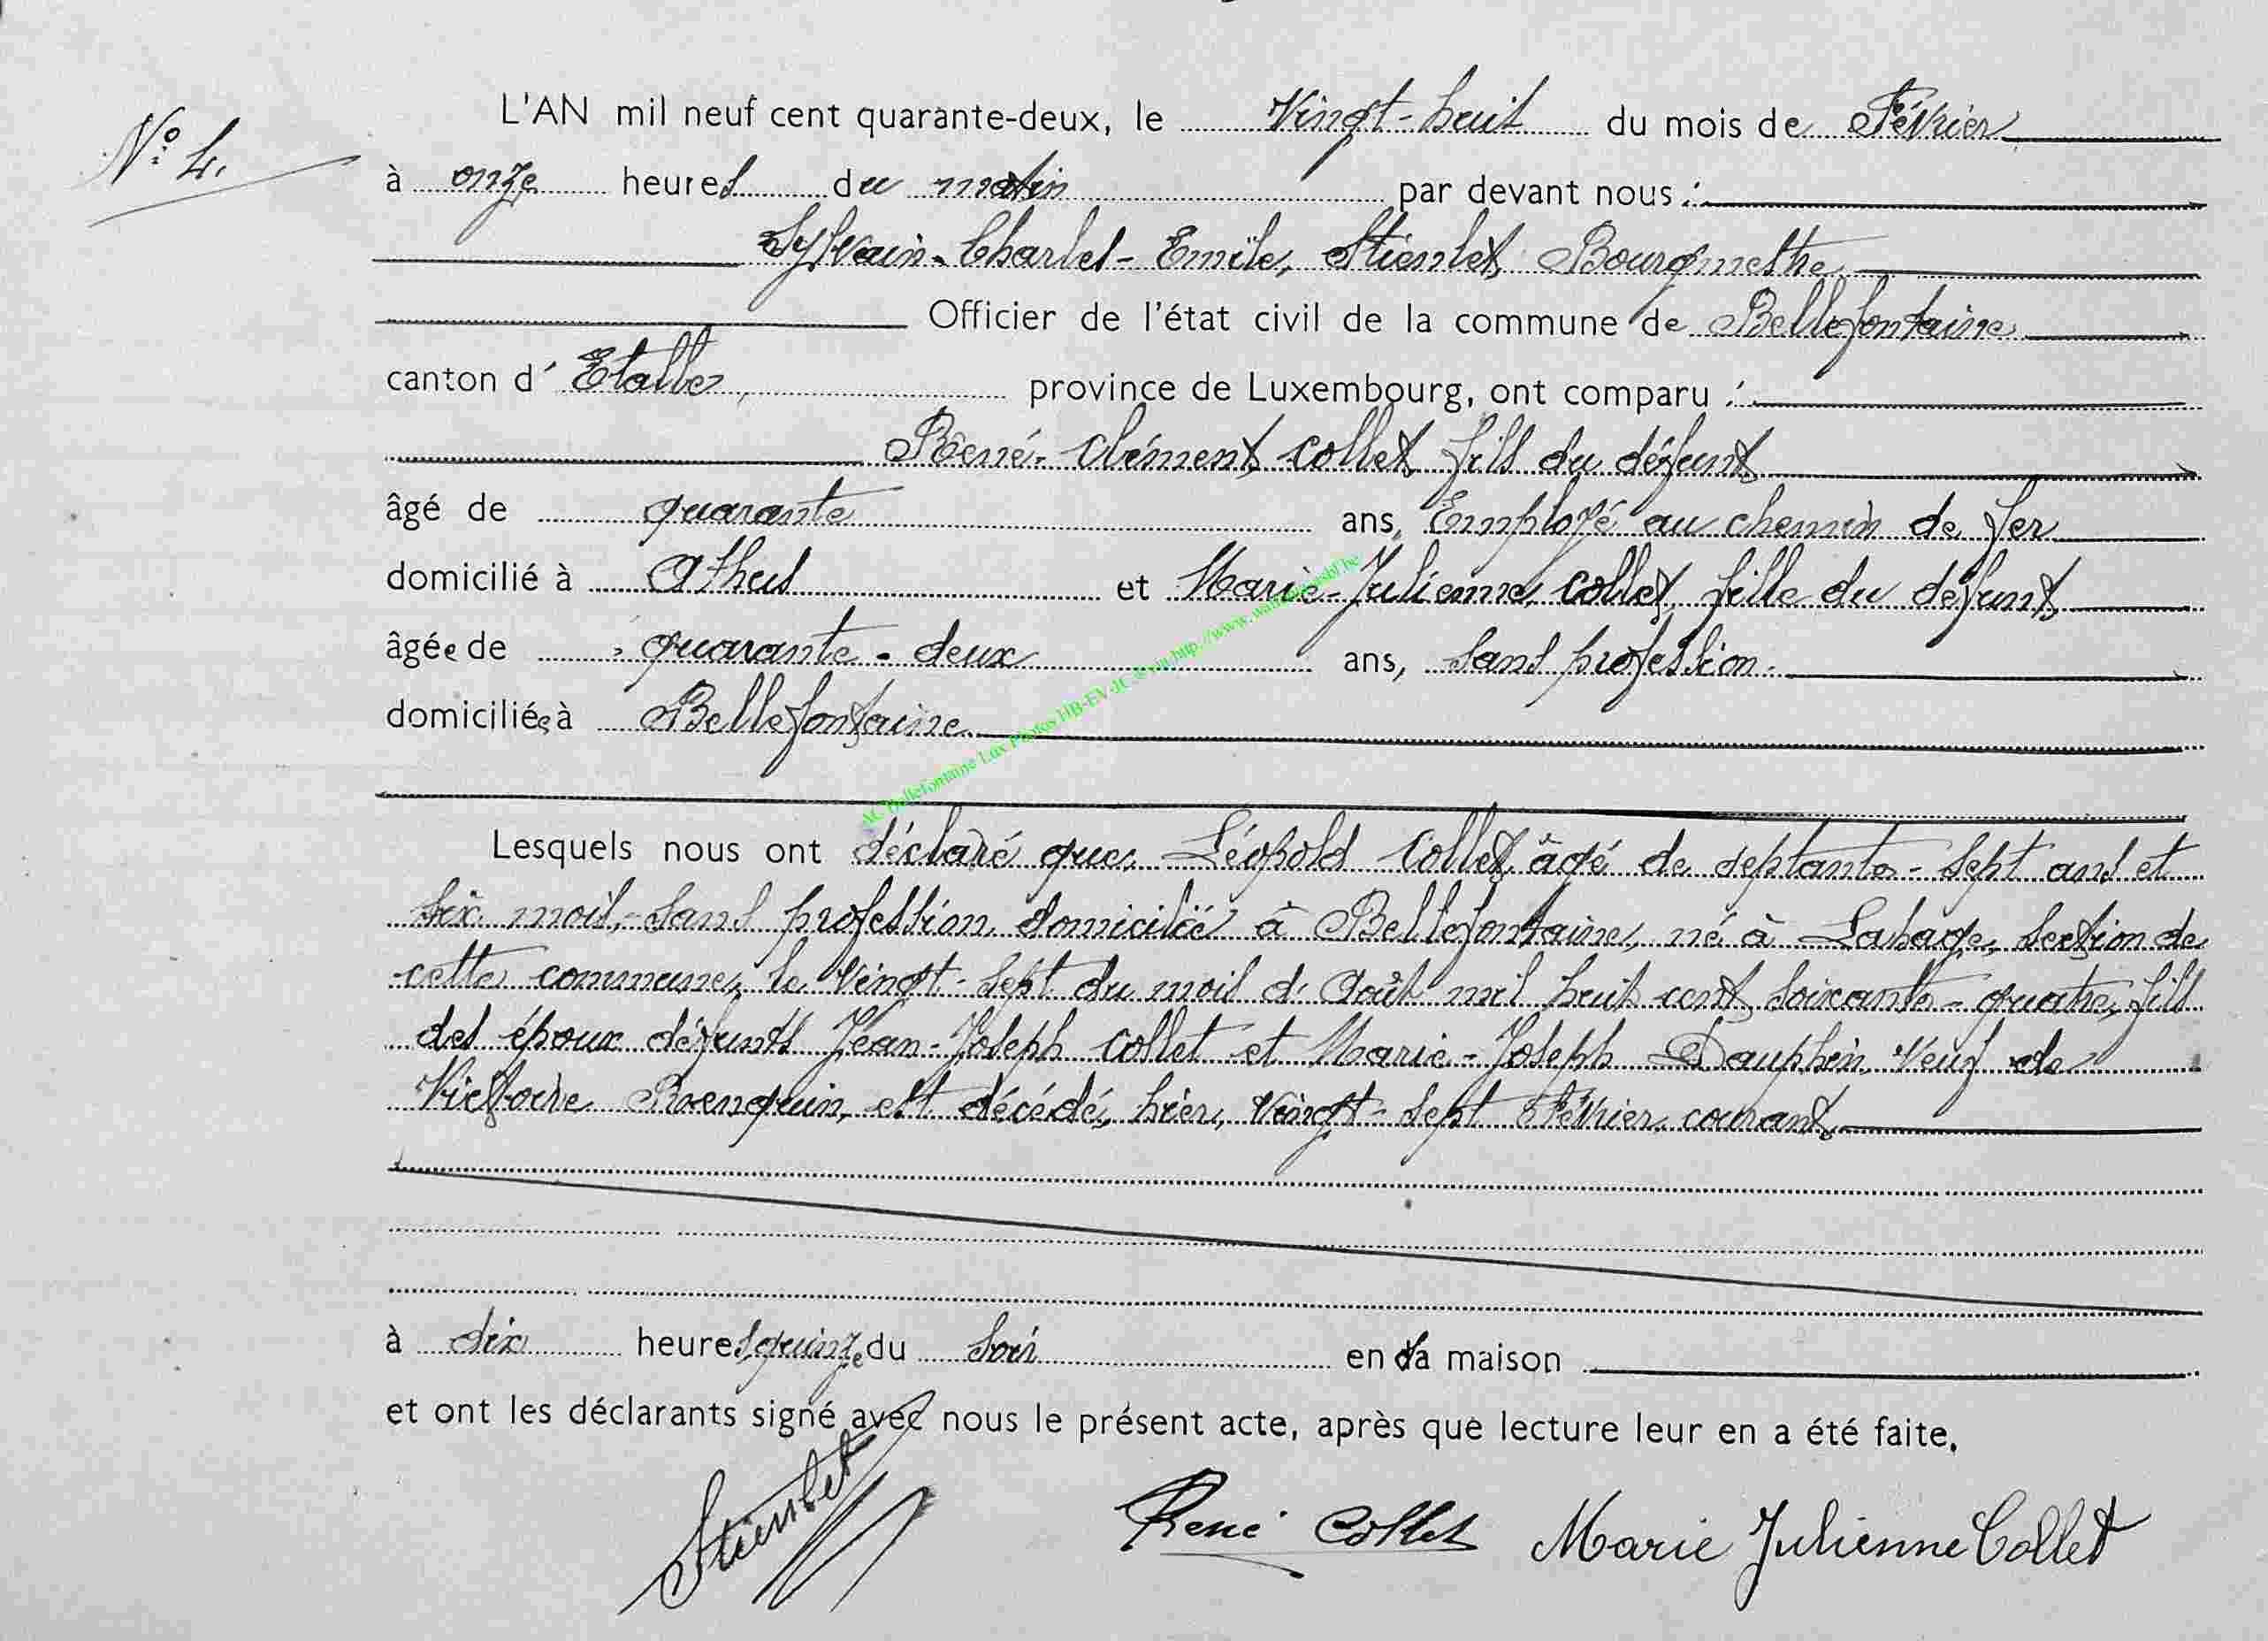 N° 4.
L'AN mil neuf cent quarante-deux, le Vingt-huit du mois de Février
à onze heures du matin par devant nous :
Sylvain-Charles-Emile, Stienlet, Bourgmestre
Officier de l'état civil de la commune de Bellefontaine
canton d' Etalle province de Luxembourg, ont comparu :
René-Clément Collet fils du défunt
âgé de quarante ans, Employé au chemin de fer
domicilié à Athus et Marie-Julienne, Collet, fille du défunt
âgée de quarante-deux ans, sans profession
domiciliée à Bellefontaine
Lesquels nous ont déclaré que Léopold Collet, âgé de septante-sept ans et
six mois, sans profession, domicilié à Bellefontaine, né à Lahage, section de
cette commune, le vingt-sept du mois d'Août mil huit cent soixante-quatre, fils
des époux défunts Jean-Joseph Collet et Marie-Joseph Dauphin, veuf de
Victoire Renquin, est décédé, hier, vingt-sept Février courant
à dix heures quinze du soir en sa maison
et ont les déclarants signé avec nous le présent acte, après que lecture leur en a été faite.
Stienlet René Collet Marie Julienne Collet